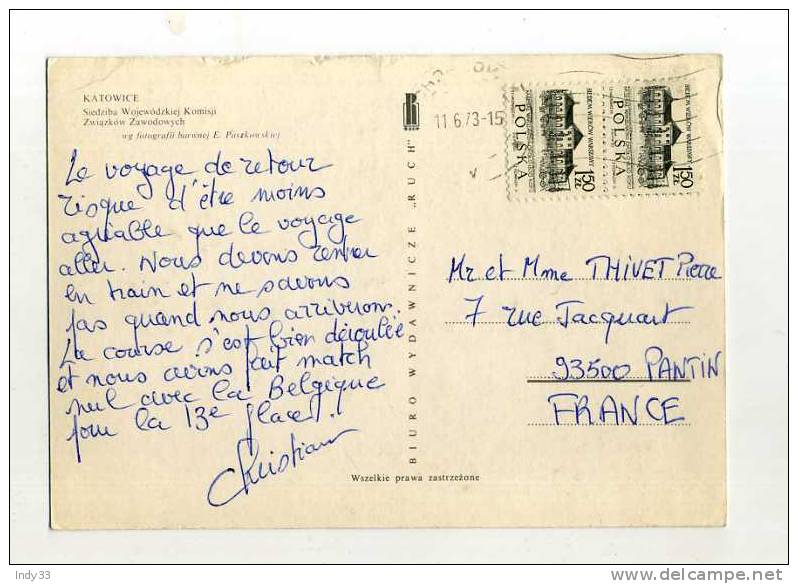 KATOWICE
Siedziba Wojewódzkiej Komisji
Związków Zawodowych
wg fotografii barwnej E. Paszkowskiej
Le voyage de retour
risque d'être moins
agréable que le voyage
aller. Nous devons rentrer
en train et ne savons
pas quand nous arriverons.
La course s'est bien déroulée
et nous avons fait match
nul avec la Belgique
pour la 13e place!
Christian
BIURO WYDAWNICZE „RUCH"
RUCH
11.6.73-15
POLSKA
1,50 ZŁ
POLSKA
1,50 ZŁ
Mr et Mme THIVET Pierre
7 rue Jacquart
93500 PANTIN
FRANCE
Wszelkie prawa zastrzeżone
Indy33